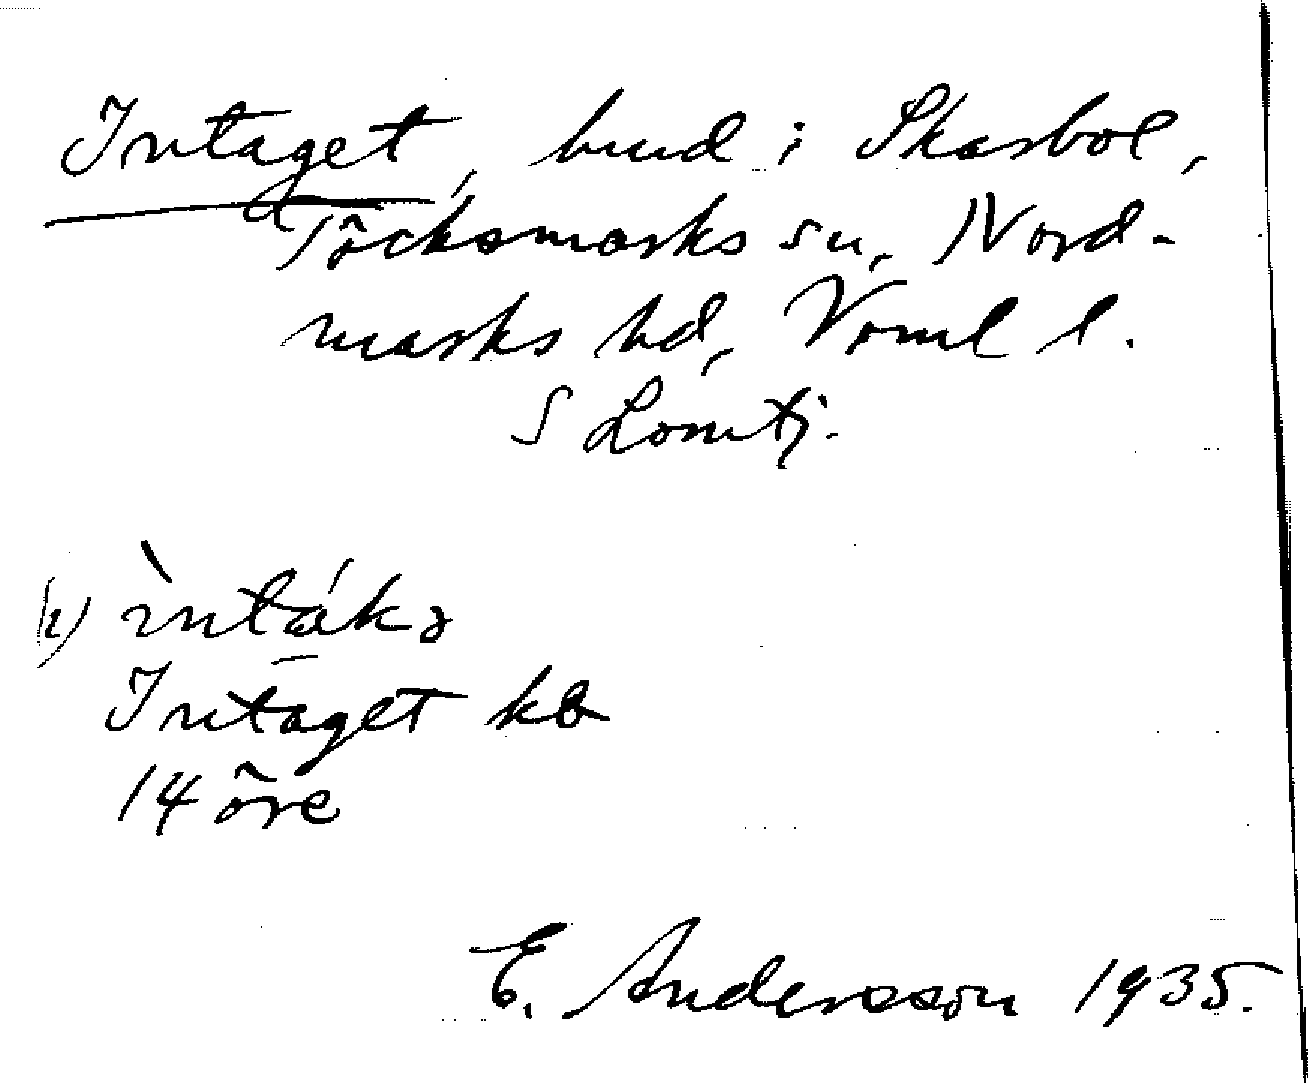 Intaget, hmd i Skarbol,
Töcksmarks sn, Nord-
marks hd, Vrml l.
S Lömtj.
(i) ìntákə
Intaget kb
14 öre
E. Andersson 1935.